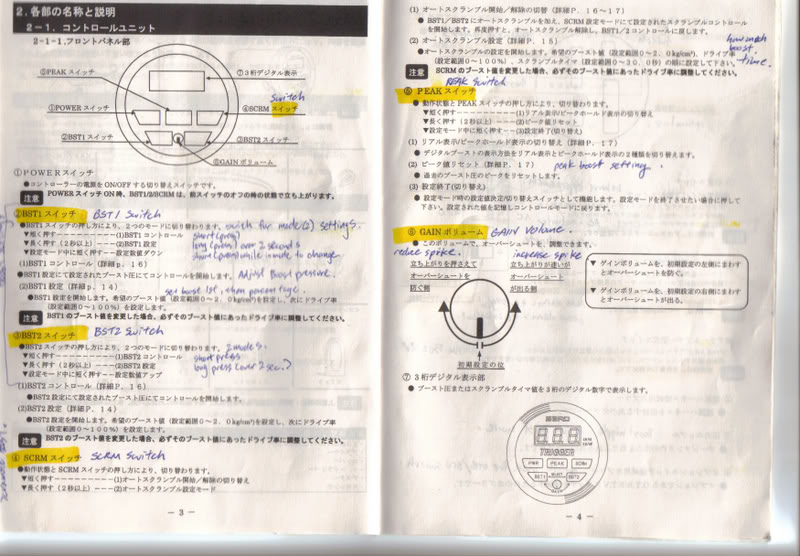 2．各部の名称と説明
2－1．コントロールユニット
2-1-1.フロントパネル部
⑤PEAKスイッチ
⑦3桁デジタル表示
switch
①POWERスイッチ
④SCRMスイッチ
②BST1スイッチ
③BST2スイッチ
⑥GAINボリューム
①POWERスイッチ
●コントローラーの電源をON/OFFする切り替えスイッチです。
注意 POWERスイッチON時、BST1/2/SCRMは、前スイッチのオフの時の状態で立ち上がります。
②BST1スイッチ BST1 Switch
●BST1スイッチの押し方により、2つのモードに切り替わります。 switch for mode(2) settings.
▼短く押す----------(1)BST1コントロール short(press)
▼長く押す（2秒以上）---(2)BST1設定 long(press) over 2 seconds
▼設定モード中に短く押す--設定数値ダウン short(press) while in mode to change
(1)BST1コントロール（詳細p．16）
●BST1設定にて設定されたブースト圧にてコントロールを開始します。 Adjust Boost pressure.
(2)BST1設定（詳細p．14） set boost 1st, then percentage.
●BST1設定を開始します。希望のブースト値（設定範囲0～2．0kg/cm²)を設定し、次にドライブ率
（設定範囲0～100％）を設定します。
注意 BST1のブースト値を変更した場合、必ずそのブースト値にあったドライブ率に調整してください。
③BST2スイッチ BST2 Switch
●BST2スイッチの押し方により、2つのモードに切り替わります。 2 modes.
▼短く押す----------(1)BST2コントロール short press
▼長く押す（2秒以上）---(2)BST2設定 long press (over 2 sec.)
▼設定モード中に短く押す--設定数値アップ
(1)BST2コントロール（詳細P．16）
●BST2設定にて設定されたブースト圧にてコントロールを開始します。
(2)BST2設定（詳細P．14）
●BST2設定を開始します。希望のブースト値（設定範囲0～2．0kg/cm²)を設定し、次にドライブ率
（設定範囲0～100％）を設定します。
注意 BST2のブースト値を変更した場合、必ずそのブースト値にあったドライブ率に調整してください。
④SCRMスイッチ SCRM Switch
●動作状態とSCRMスイッチの押し方により、切り替わります。
▼短く押す----------(1)オートスクランブル開始／解除の切替え
▼長く押す（2秒以上）---(2)オートスクランブル設定モード
－3－
(1) オートスクランブル開始／解除の切替え（詳細P．16～17）
● BST1/BST2にオートスクランブルを加え、SCRM設定モードにて設定されたスクランブルコントロール
を開始します。再度押すと、オートスクランブル解除し、BST1/2コントロールに戻します。
(2) オートスクランブル設定（詳細P．15） how much
●オートスクランブルの設定を開始します。希望のブースト値（設定範囲0～2．0kg/cm²)、ドライブ率 boost
（設定範囲0～100％）、スクランブルタイマ（設定範囲0～30．0秒）の順に設定して下さい。 time.
注意 SCRMのブースト値を変更した場合、必ずそのブースト値にあったドライブ率に調整してください。
PEAK Switch
⑤ PEAKスイッチ
● 動作状態とPEAKスイッチの押し方により、切り替わります。
▼短く押す----------(1)リアル／ピークホールド表示の切替え
▼長く押す（2秒以上）---(2)ピーク値リセット
▼設定モード中に短く押す---(3)設定終了(切り替え)
(1) リアル表示／ピークホールド表示の切り替え（詳細P．17）
● デジタルブーストの表示方法をリアル表示とピークホールド表示の2種類を切り替えます。
(2) ピーク値リセット（詳細P．17） peak boost setting.
● 過去のブースト圧のピークをリセットします。
(3) 設定終了(切り替え)
● 設定モード時の設定値決定/切り替えスイッチとして機能します。設定モードを終了させたい場合に押して
下さい。設定された値を記憶しコントロールモードに戻ります。
⑥ GAINボリューム GAIN Volume.
● このボリュームで、オーバーシュートを、調整できます。
reduce spike.
increase spike
立ち上がりを押さえて
オーバーシュートを
防ぐ側
立ち上がりが速いが
オーバーシュート
が出る側
▼ ゲインボリュームを、初期設定の左側にまわす
とオーバーシュートを防ぐ。
▼ ゲインボリュームを、初期設定の右側にまわす
とオーバーシュートが出る。
初期設定の位
⑦ 3桁デジタル表示部
● ブースト圧またはスクランブルタイマ値を3桁のデジタル数字で表示します。
8.8.8.
TRIGGER
PWR
PEAK
SCRM
BST1
BST2
GAIN
－4－